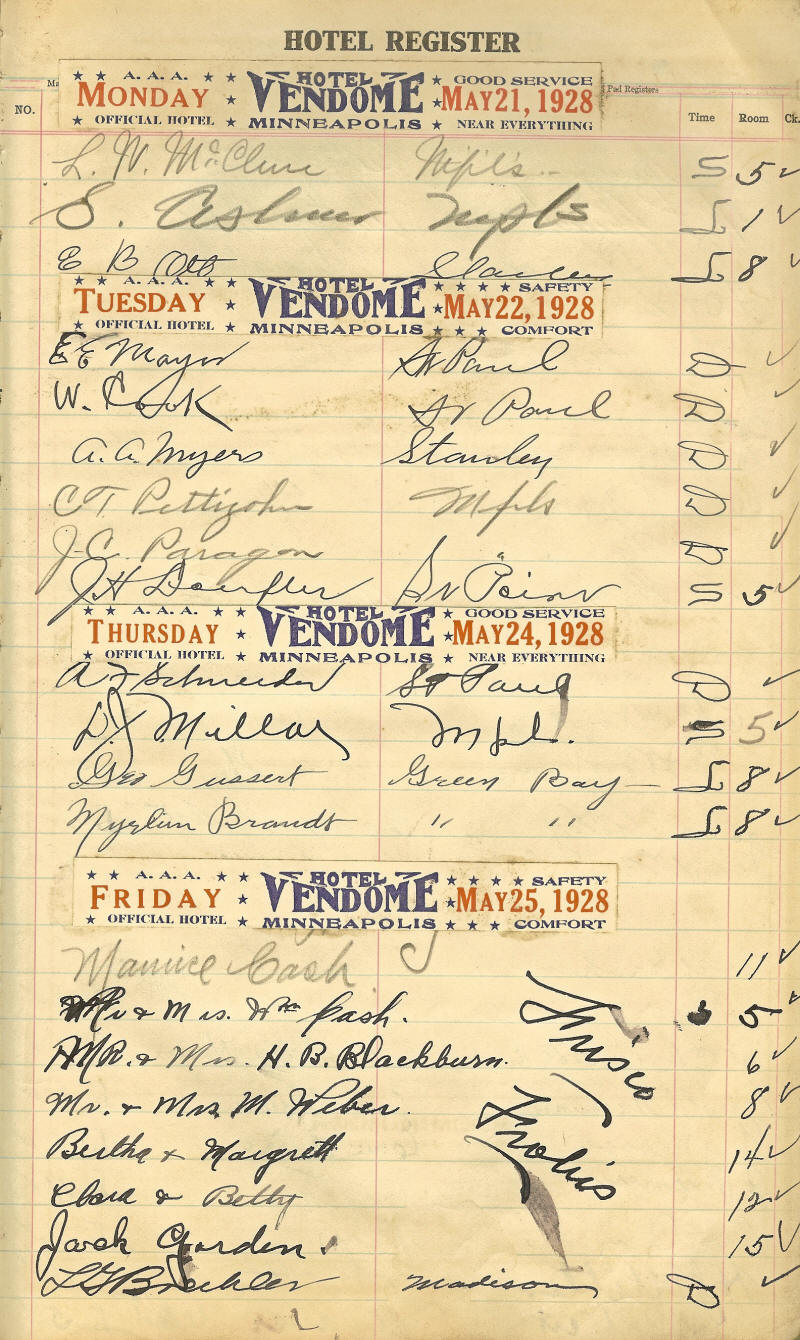 HOTEL REGISTER
Pad Registers
NO. Time Room Ck.
★ ★ A.A.A. ★ ★ HOTEL ★ GOOD SERVICE
MONDAY ★ VENDOME ★ MAY 21, 1928
★ OFFICIAL HOTEL ★ MINNEAPOLIS ★ NEAR EVERYTHING
L. W. McClure Mpl's. S 5 ✓
S. Mpls L 1 ✓
E B Ott L 8 ✓
★ ★ A.A.A. ★ ★ HOTEL ★ ★ ★ ★ SAFETY
TUESDAY ★ VENDOME ★ MAY 22, 1928
★ OFFICIAL HOTEL ★ MINNEAPOLIS ★ ★ ★ COMFORT
E E Mayor St Paul D ✓
W. Cook St Paul D ✓
A. A. Myers Stanley D ✓
C T Pettijohn Mpls D ✓
J. C. Paragon D ✓
J H St S 5 ✓
★ ★ A.A.A. ★ ★ HOTEL ★ GOOD SERVICE
THURSDAY ★ VENDOME ★ MAY 24, 1928
★ OFFICIAL HOTEL ★ MINNEAPOLIS ★ NEAR EVERYTHING
A F Schneider St Paul D ✓
D. J. Millar Mpl. S 5 ✓
Geo Gussert Green Bay — L 8 ✓
Brandt " " L 8 ✓
★ ★ A.A.A. ★ ★ HOTEL ★ ★ ★ ★ SAFETY
FRIDAY ★ VENDOME ★ MAY 25, 1928
★ OFFICIAL HOTEL ★ MINNEAPOLIS ★ ★ ★ COMFORT
Maurice Cash 11 ✓
Mr & Mrs. Wm Cash. 5 ✓
MR. & Mrs. H. B. Blackburn. 6 ✓
Frisco
Mr. & Mrs. M. Weber. 8 ✓
Frolics
Bertha & Margrett 14 ✓
Clara & Betty 12 ✓
Jack Gorden. 15 ✓
L G Madison D ✓